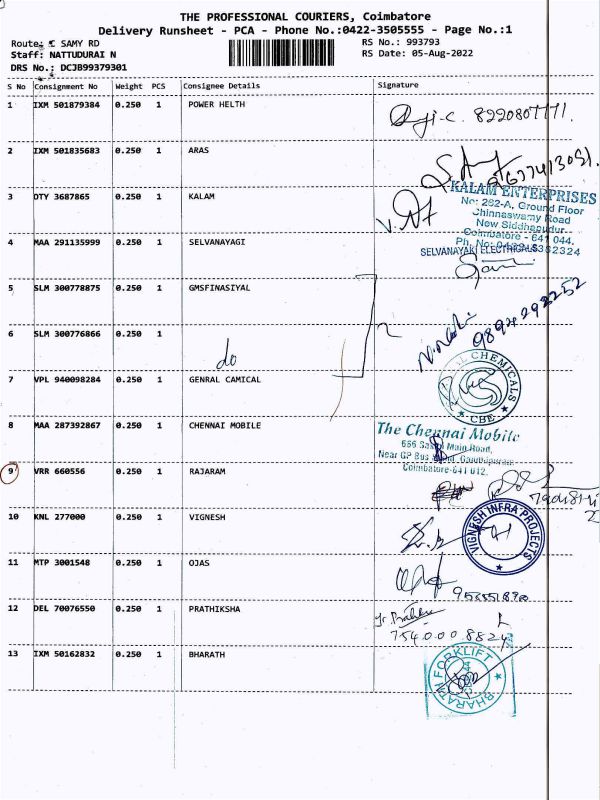 THE PROFESSIONAL COURIERS, Coimbatore
Delivery Runsheet - PCA - Phone No.:0422-3505555 - Page No.:1
Route: SAMY RD
RS No.: 993793
Staff: NATTUDURAI N
RS Date: 05-Aug-2022
DRS No.: DCJB99379301
S No Consignment No Weight PCS Consignee Details Signature
1 IXM 501879384 0.250 1 POWER HELTH
2 IXM 501835683 0.250 1 ARAS
3 DTY 3687865 0.250 1 KALAM
KALAM ENTERPRISES
No: 282-A, Ground Floor
Chinnaswamy Road
New Siddhapudur
Coimbatore - 641 044.
4 MAA 291135999 0.250 1 SELVANAYAGI
SELVANAYAKI ELECTRICALS
5 SLM 300778875 0.250 1 GMSFINASIYAL
6 SLM 300776866 0.250 1
do
7 VPL 940098284 0.250 1 GENRAL CAMICAL
CHEMICALS
CBE
8 MAA 287392867 0.250 1 CHENNAI MOBILE
The Chennai Mobile
Main Road,
Near GP Bus
Coimbatore-641 012.
9 VRR 660556 0.250 1 RAJARAM
10 KNL 277000 0.250 1 VIGNESH
VIGNESH INFRA PROJECTS
11 MTP 3001548 0.250 1 OJAS
12 DEL 70076550 0.250 1 PRATHIKSHA
13 IXM 50162832 0.250 1 BHARATH
BHARATH FORKLIFT